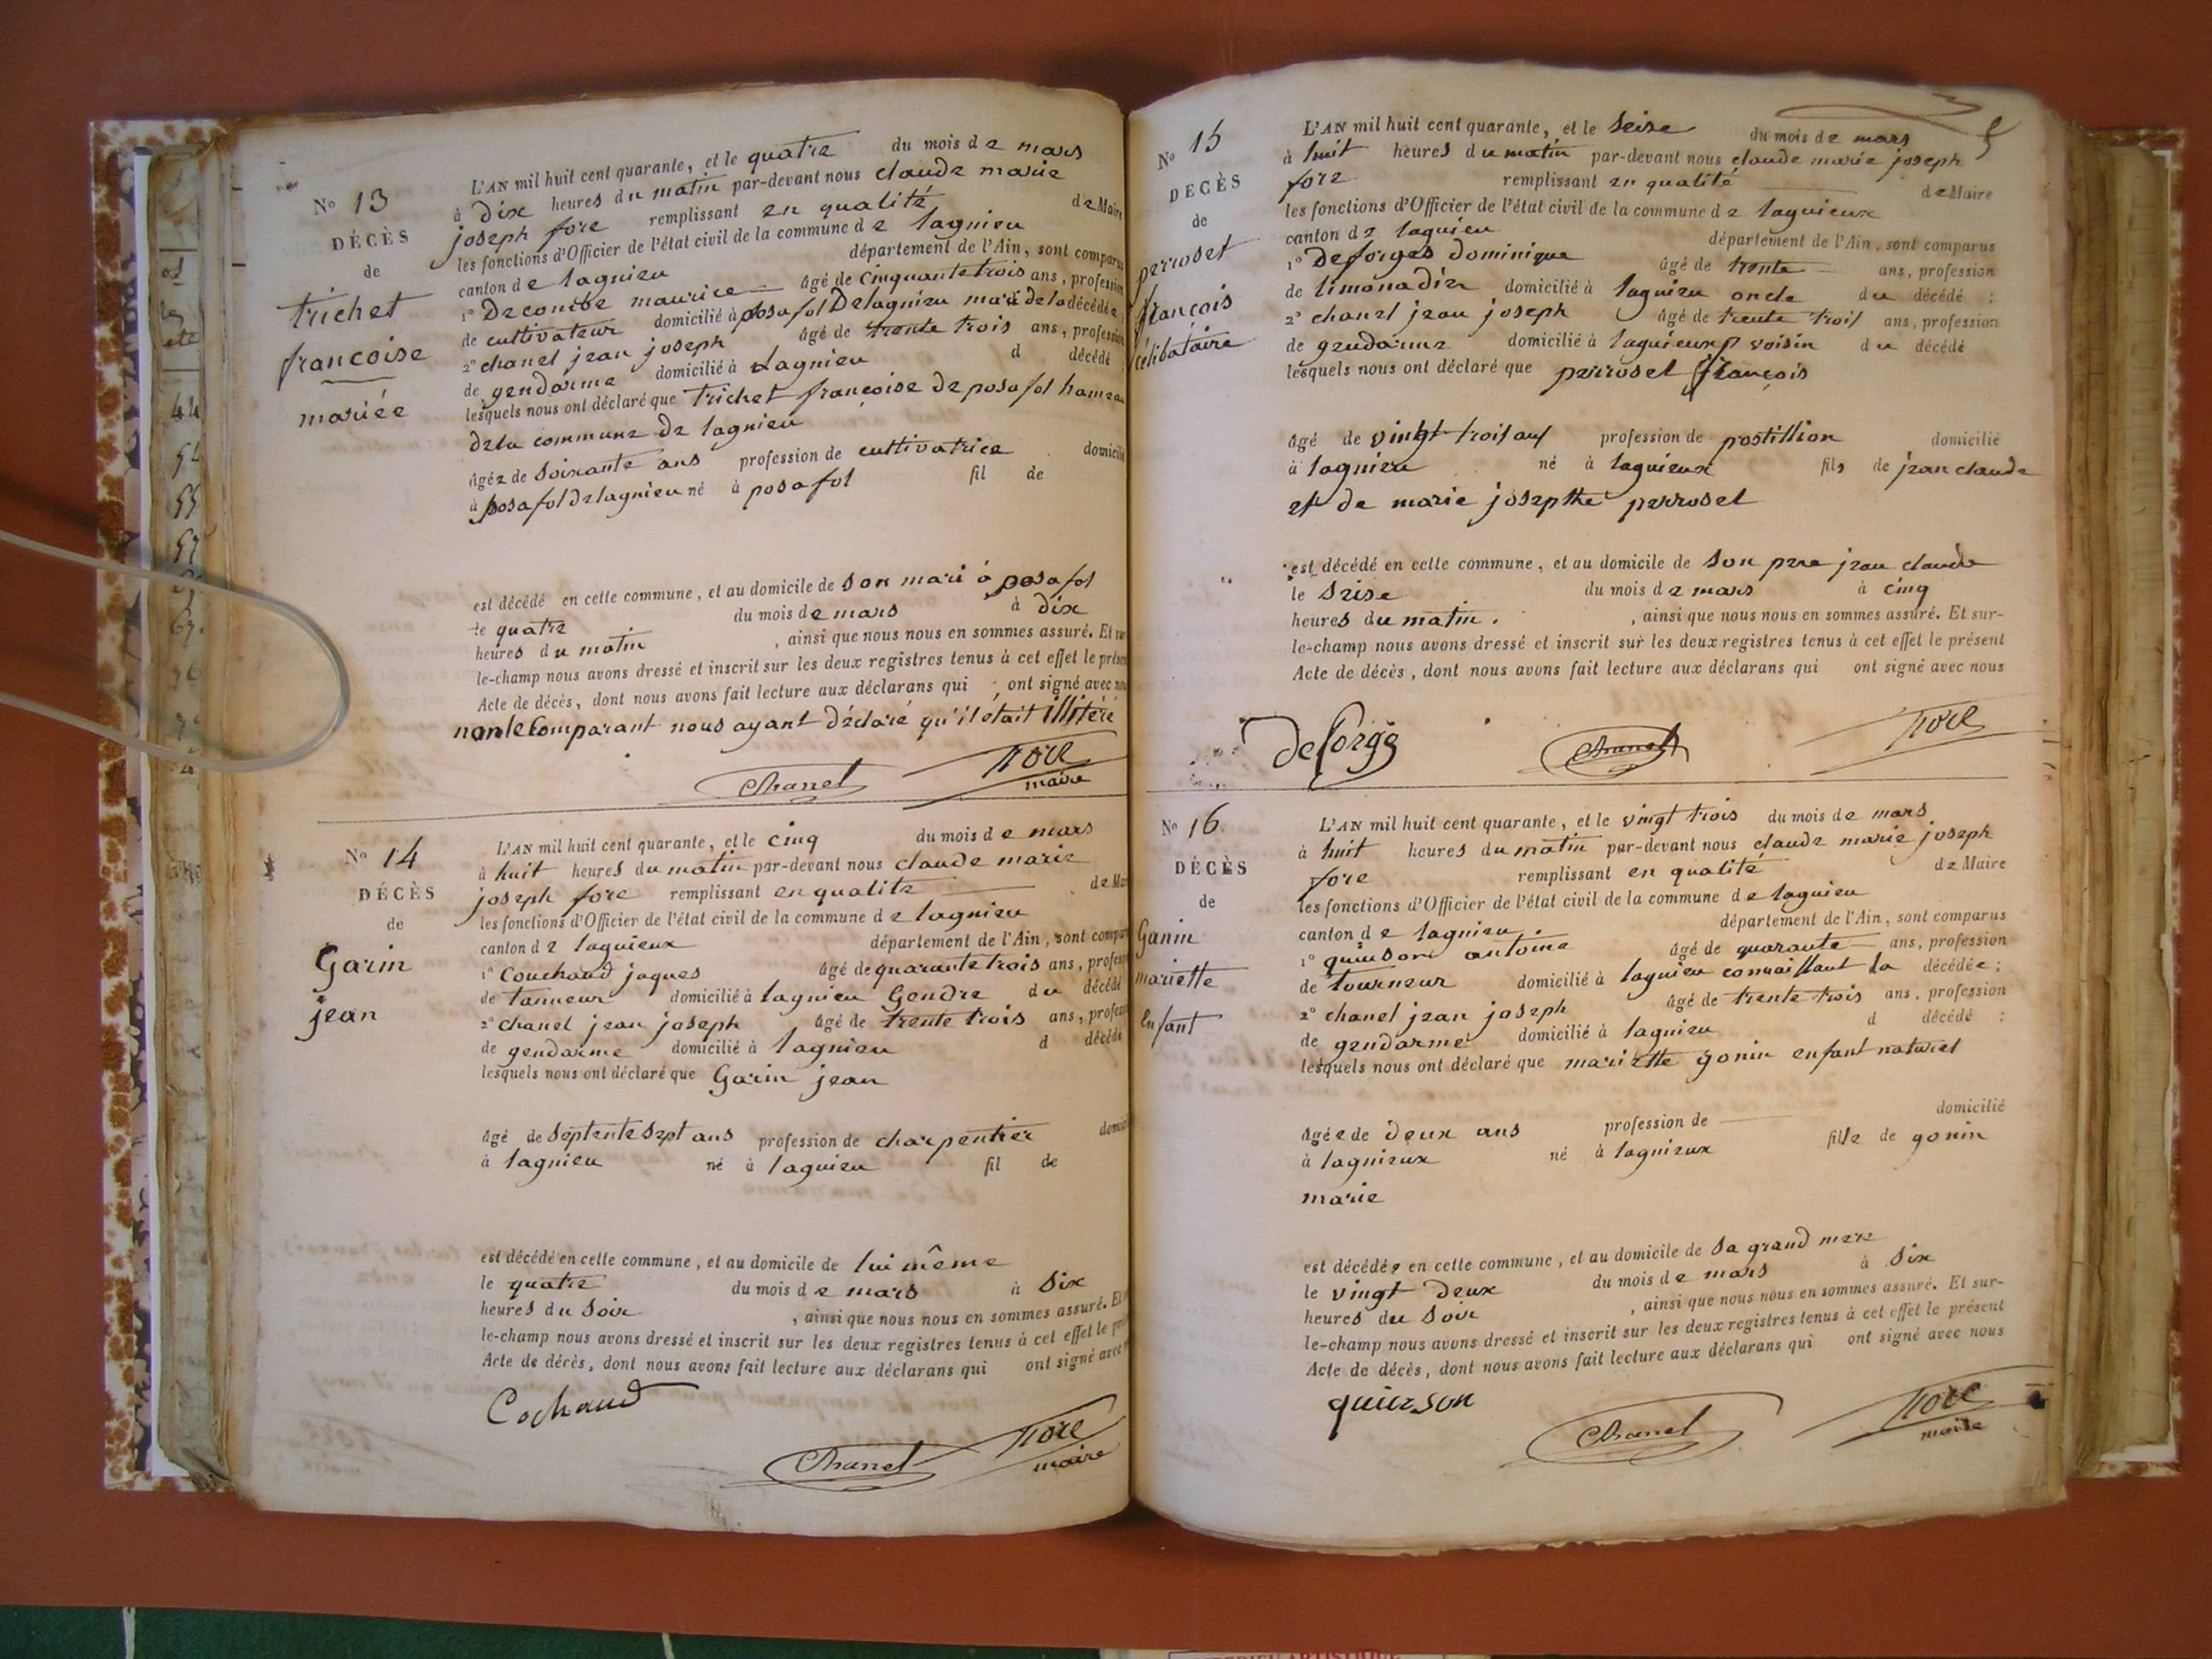 N° 13
DÉCÈS
de
trichet
francoise
mariée
L'AN mil huit cent quarante, et le quatre du mois de mars
à dix heures du matin par-devant nous claude marie
joseph fore remplissant en qualité de Maire
les fonctions d'Officier de l'état civil de la commune de lagnieu
canton de lagnieu département de l'Ain, sont comparus
1° Decombe maurice âgé de cinquante trois ans, profession
de cultivateur domicilié à posafol De lagnieu mari de la décédée
2° chanel jean joseph âgé de trente trois ans, profession
de gendarme domicilié à Lagnieu d décédé
lesquels nous ont déclaré que trichet françoise de posafol hameau
de la commune de lagnieu
âgée de soixante ans profession de cultivatrice domicilié
à posafol de lagnieu né à posafol fil de
est décédé en cette commune, et au domicile de son mari à posafol
le quatre du mois de mars à dix
heures du matin, ainsi que nous nous en sommes assuré. Et sur
le-champ nous avons dressé et inscrit sur les deux registres tenus à cet effet le présent
Acte de décès, dont nous avons fait lecture aux déclarans qui ont signé avec nous
non le Comparant nous ayant déclaré qu'il était illitéré
Chanel fore
maire
N° 14
DÉCÈS
de
Garin
jean
L'AN mil huit cent quarante, et le cinq du mois de mars
à huit heures du matin par-devant nous claude marie
joseph fore remplissant en qualité de Maire
les fonctions d'Officier de l'état civil de la commune de lagnieu
canton de lagnieux département de l'Ain, sont comparus
1° Couchaud jaques âgé de quarante trois ans, profession
de tanneur domicilié à lagnieu Gendre du décédé
2° chanel jean joseph âgé de trente trois ans, profession
de gendarme domicilié à lagnieu d décédé
lesquels nous ont déclaré que Garin jean
âgé de septente sept ans profession de charpentier domicilié
à lagnieu né à lagnieu fil de
est décédé en cette commune, et au domicile de lui même
le quatre du mois de mars à six
heures du soir, ainsi que nous nous en sommes assuré. Et
le-champ nous avons dressé et inscrit sur les deux registres tenus à cet effet le présent
Acte de décès, dont nous avons fait lecture aux déclarans qui ont signé avec
Cochaud
Chanel fore
maire
N° 15
DÉCÈS
de
perroset
françois
célibataire
L'AN mil huit cent quarante, et le seise du mois de mars
à huit heures du matin par-devant nous claude marie joseph
fore remplissant en qualité de Maire
les fonctions d'Officier de l'état civil de la commune de lagnieux
canton de lagnieu département de l'Ain, sont comparus
1° Deforges dominique âgé de trente ans, profession
de limonadier domicilié à lagnieu oncle du décédé ;
2° chanel jean joseph âgé de trente trois ans, profession
de gendarme domicilié à lagnieux voisin du décédé
lesquels nous ont déclaré que perroset françois
âgé de vinght trois ans profession de postillion domicilié
à lagnieu né à lagnieux fils de jean claude
et de marie josepthe perroset
est décédé en cette commune, et au domicile de son pere jean claude
le seise du mois de mars à cinq
heures du matin, ainsi que nous nous en sommes assuré. Et sur-
le-champ nous avons dressé et inscrit sur les deux registres tenus à cet effet le présent
Acte de décès, dont nous avons fait lecture aux déclarans qui ont signé avec nous
deforge Chanel fore
N° 16
DÉCÈS
de
Gonin
mariette
enfant
L'AN mil huit cent quarante, et le vingt trois du mois de mars
à huit heures du matin par-devant nous claude marie joseph
fore remplissant en qualité de Maire
les fonctions d'Officier de l'état civil de la commune de lagnieu
canton de lagnieu. département de l'Ain, sont comparus
1° quinson antoine âgé de quarante ans, profession
de tourneur domicilié à lagnieu connaissant la décédée ;
2° chanel jean joseph âgé de trente trois ans, profession
de gendarme domicilié à lagnieu d décédé ;
lesquels nous ont déclaré que mariette gonin enfant naturel
âgée de deux ans profession de domicilié
à lagnieux né à lagnieux fille de gonin
marie
est décédée en cette commune, et au domicile de sa grand mere
le vingt deux du mois de mars à six
heures du soir, ainsi que nous nous en sommes assuré. Et sur-
le-champ nous avons dressé et inscrit sur les deux registres tenus à cet effet le présent
Acte de décès, dont nous avons fait lecture aux déclarans qui ont signé avec nous
quinson
Chanel fore
maire